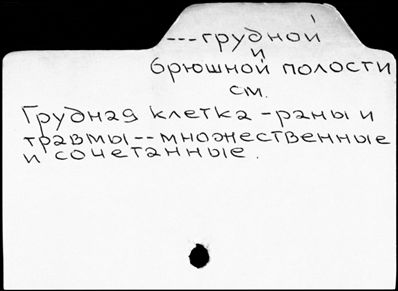 ---грудной
и
брюшной полости
см.
Грудная клетка - раны и
травмы -- множественные
и сочетанные.